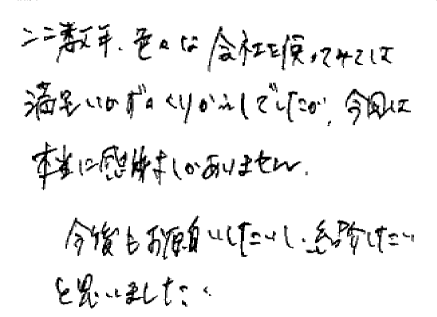 ここ数年、色々な会社を使ってみては
満足いかずのくりかえしでしたが、今回は
本当に感謝しかありません。
今後もお願いしたいし、紹介したい
と思いました。